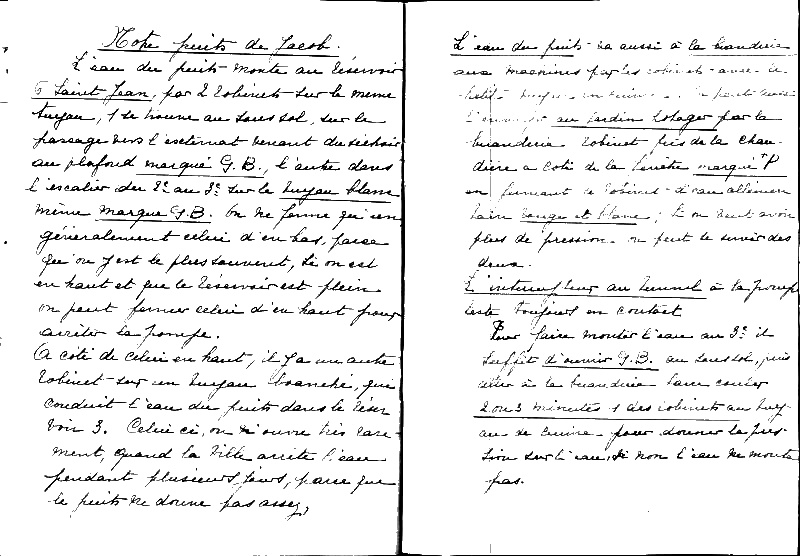 Note puits de Jacob.
L'eau du puits monte au réservoir
6 Saint Jean, par 2 robinets sur le même
tuyau, 1 se trouve au sous sol, sur le
passage vers l'external venant du séchoir
au plafond marqué G.B., l'autre dans
l'escalier du 2e au 3e sur le tuyau blanc
même marque G.B. On ne ferme qu'un
généralement celui d'en bas, parce
qu'on y est le plus souvent, si on est
en haut et que le réservoir est plein
on peut fermer celui d'en haut pour
arrêter la pompe.
A coté de celui en haut, il y a un autre
robinet sur un tuyau branché, qui
conduit l'eau du puits dans le réser
voir 3. Celui ci, on n'ouvre très rare-
ment, quand la ville arrête l'eau
pendant plusieurs jours, parce que
le puits ne donne pas assez,
L'eau du puits va aussi à la buanderie
aux machines par les robinets avec le
petit tuyau en cuivre. On peut aussi
l'envoyer au jardin potager par la
buanderie robinet près de la chau-
dière à coté de la fenêtre marqué P
en fermant le robinet d'eau
rouge et blanc ; si on veut avoir
plus de pression on peut se servir des
deux.
L'interrupteur au tunnel à la pompe
reste toujours en contact.
Pour faire monter l'eau au 3e il
suffit d'ouvrir G.B. au sous sol, puis
aller à la buanderie faire couler
2 ou 3 minutes 1 des robinets au tuy-
au de cuivre pour donner la pres-
sion sur l'eau, si non l'eau ne monte
pas.